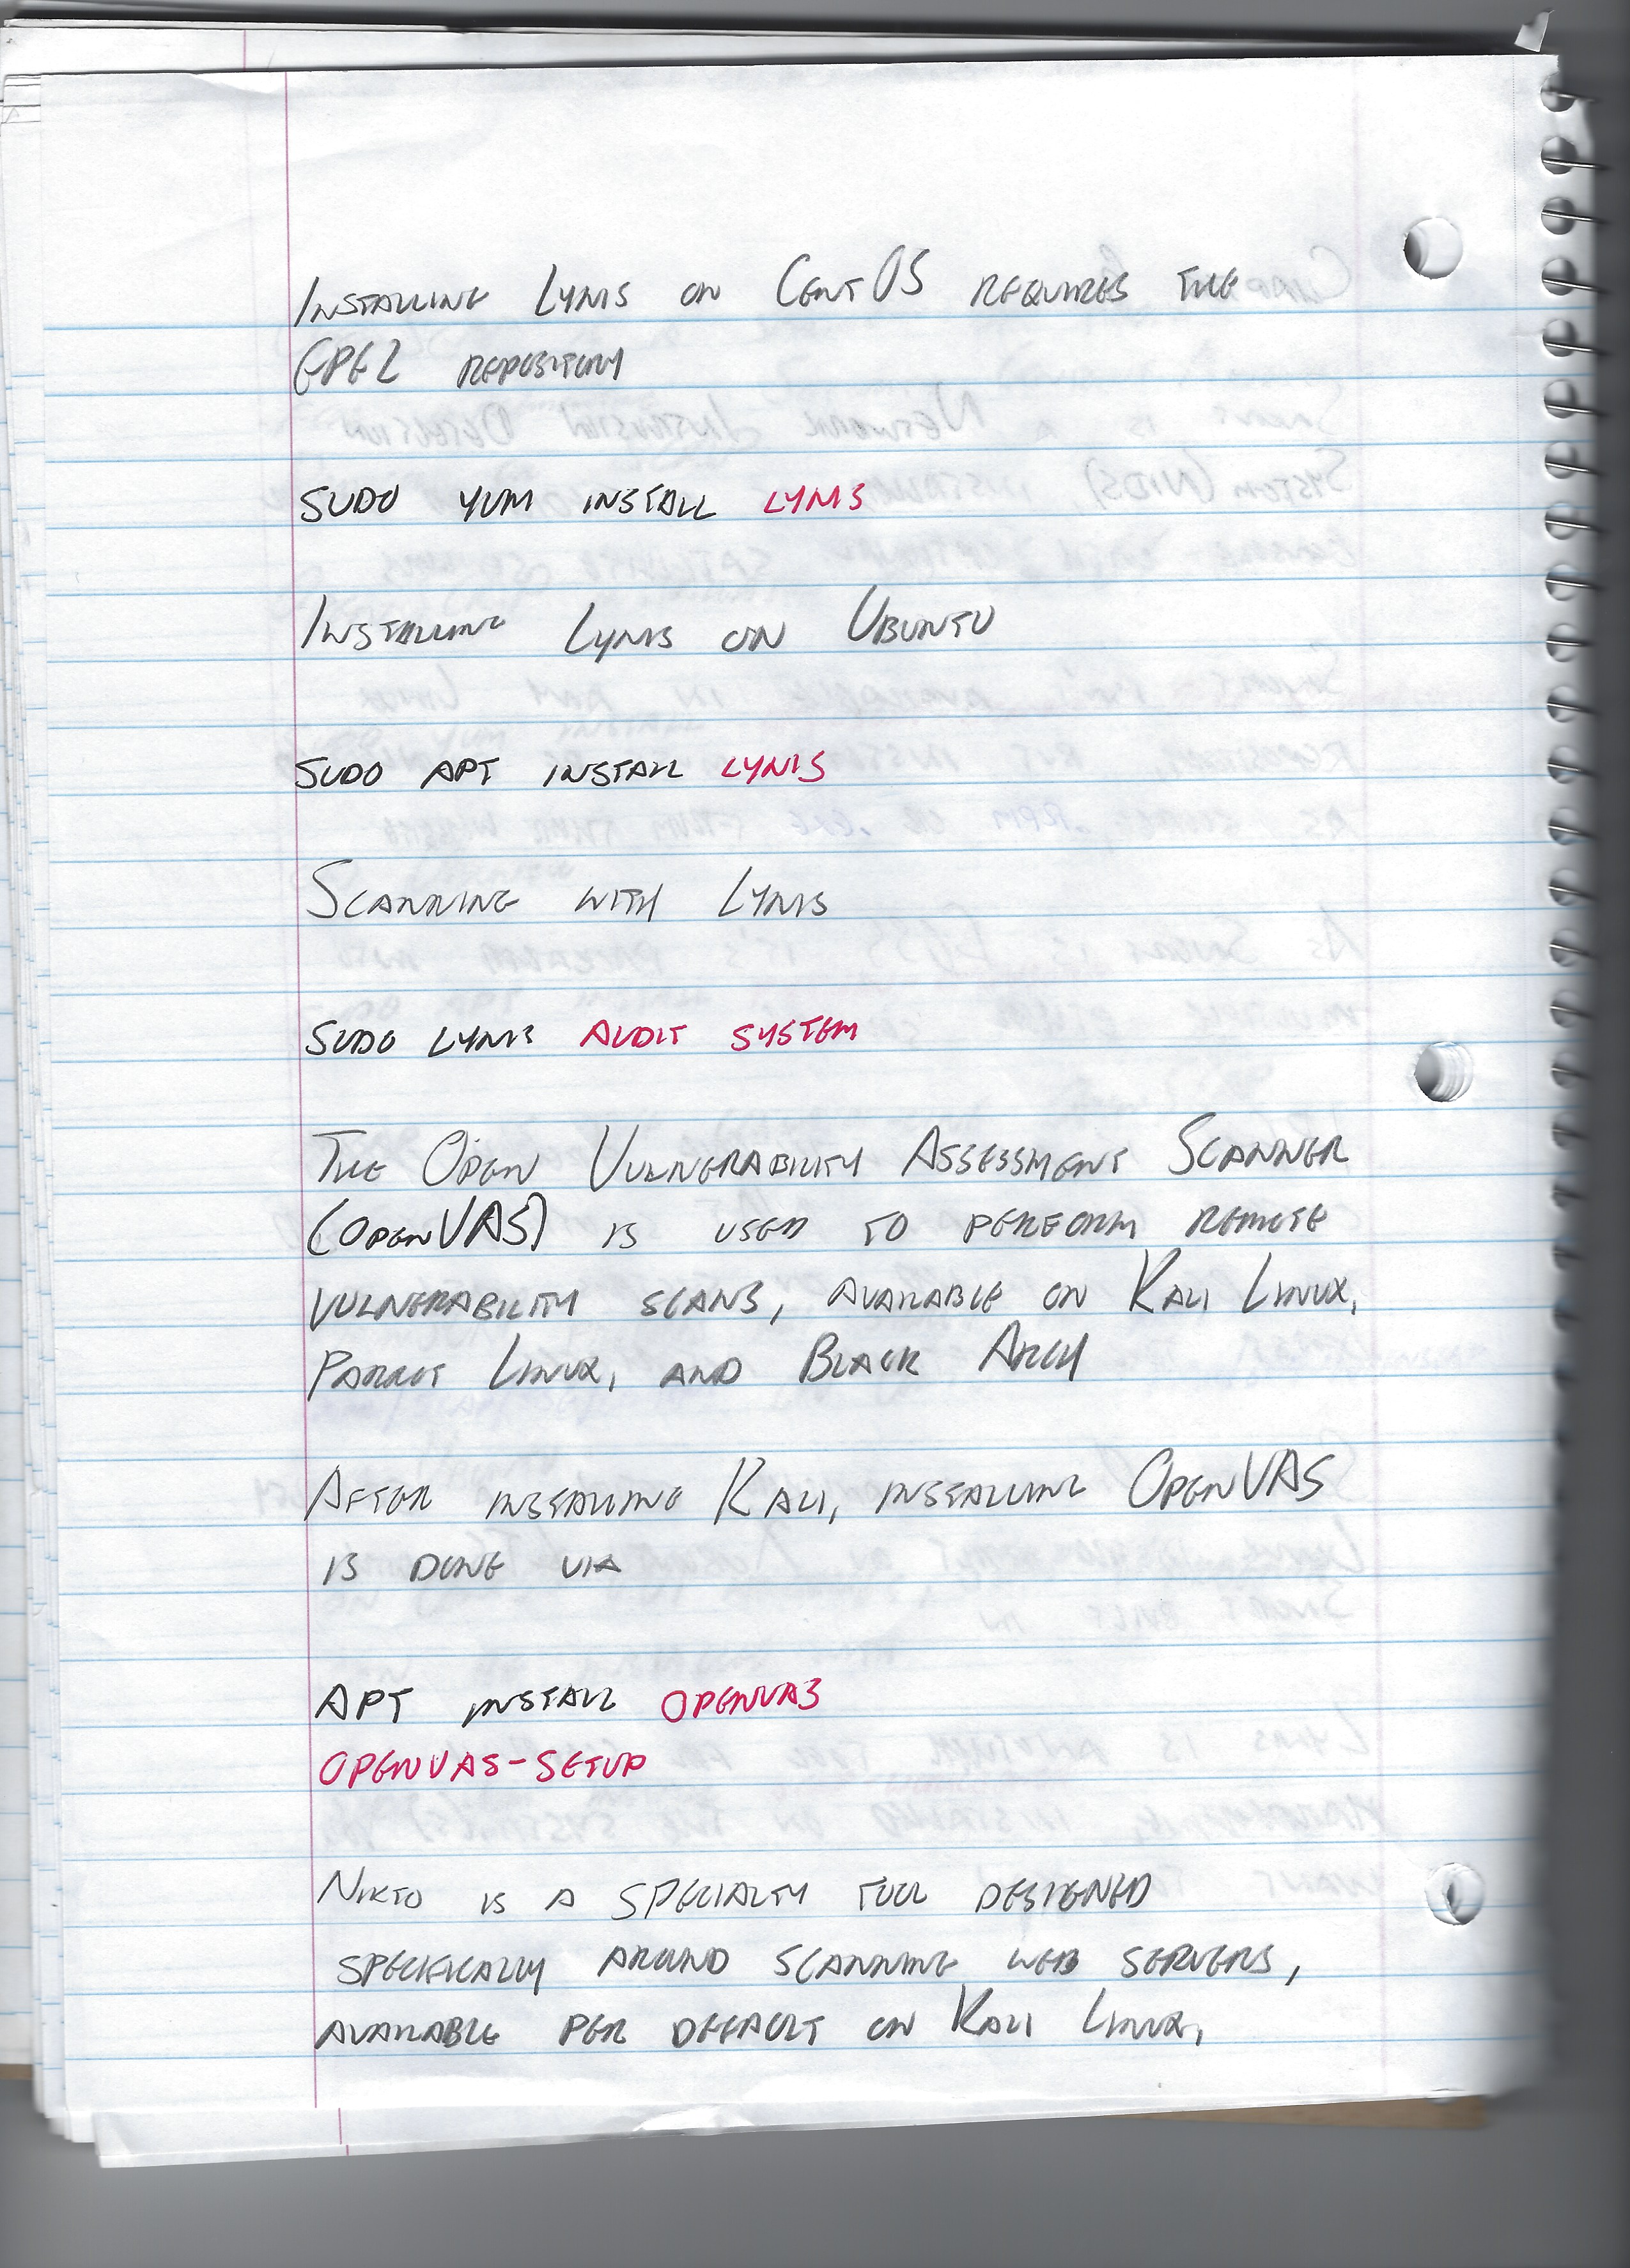 Installing Lynis on CentOS requires the
EPEL repository
sudo yum install lynis
Installing Lynis on Ubuntu
sudo apt install lynis
Scanning with Lynis
sudo lynis audit system
The Open Vulnerability Assessment Scanner
(OpenVAS) is used to perform remote
vulnerability scans, available on Kali Linux,
Parrot Linux, and Black Arch
After installing Kali, installing OpenVAS
is done via
apt install openvas
openvas-setup
Nikto is a specialty tool designed
specifically around scanning web servers,
available per default on Kali Linux,